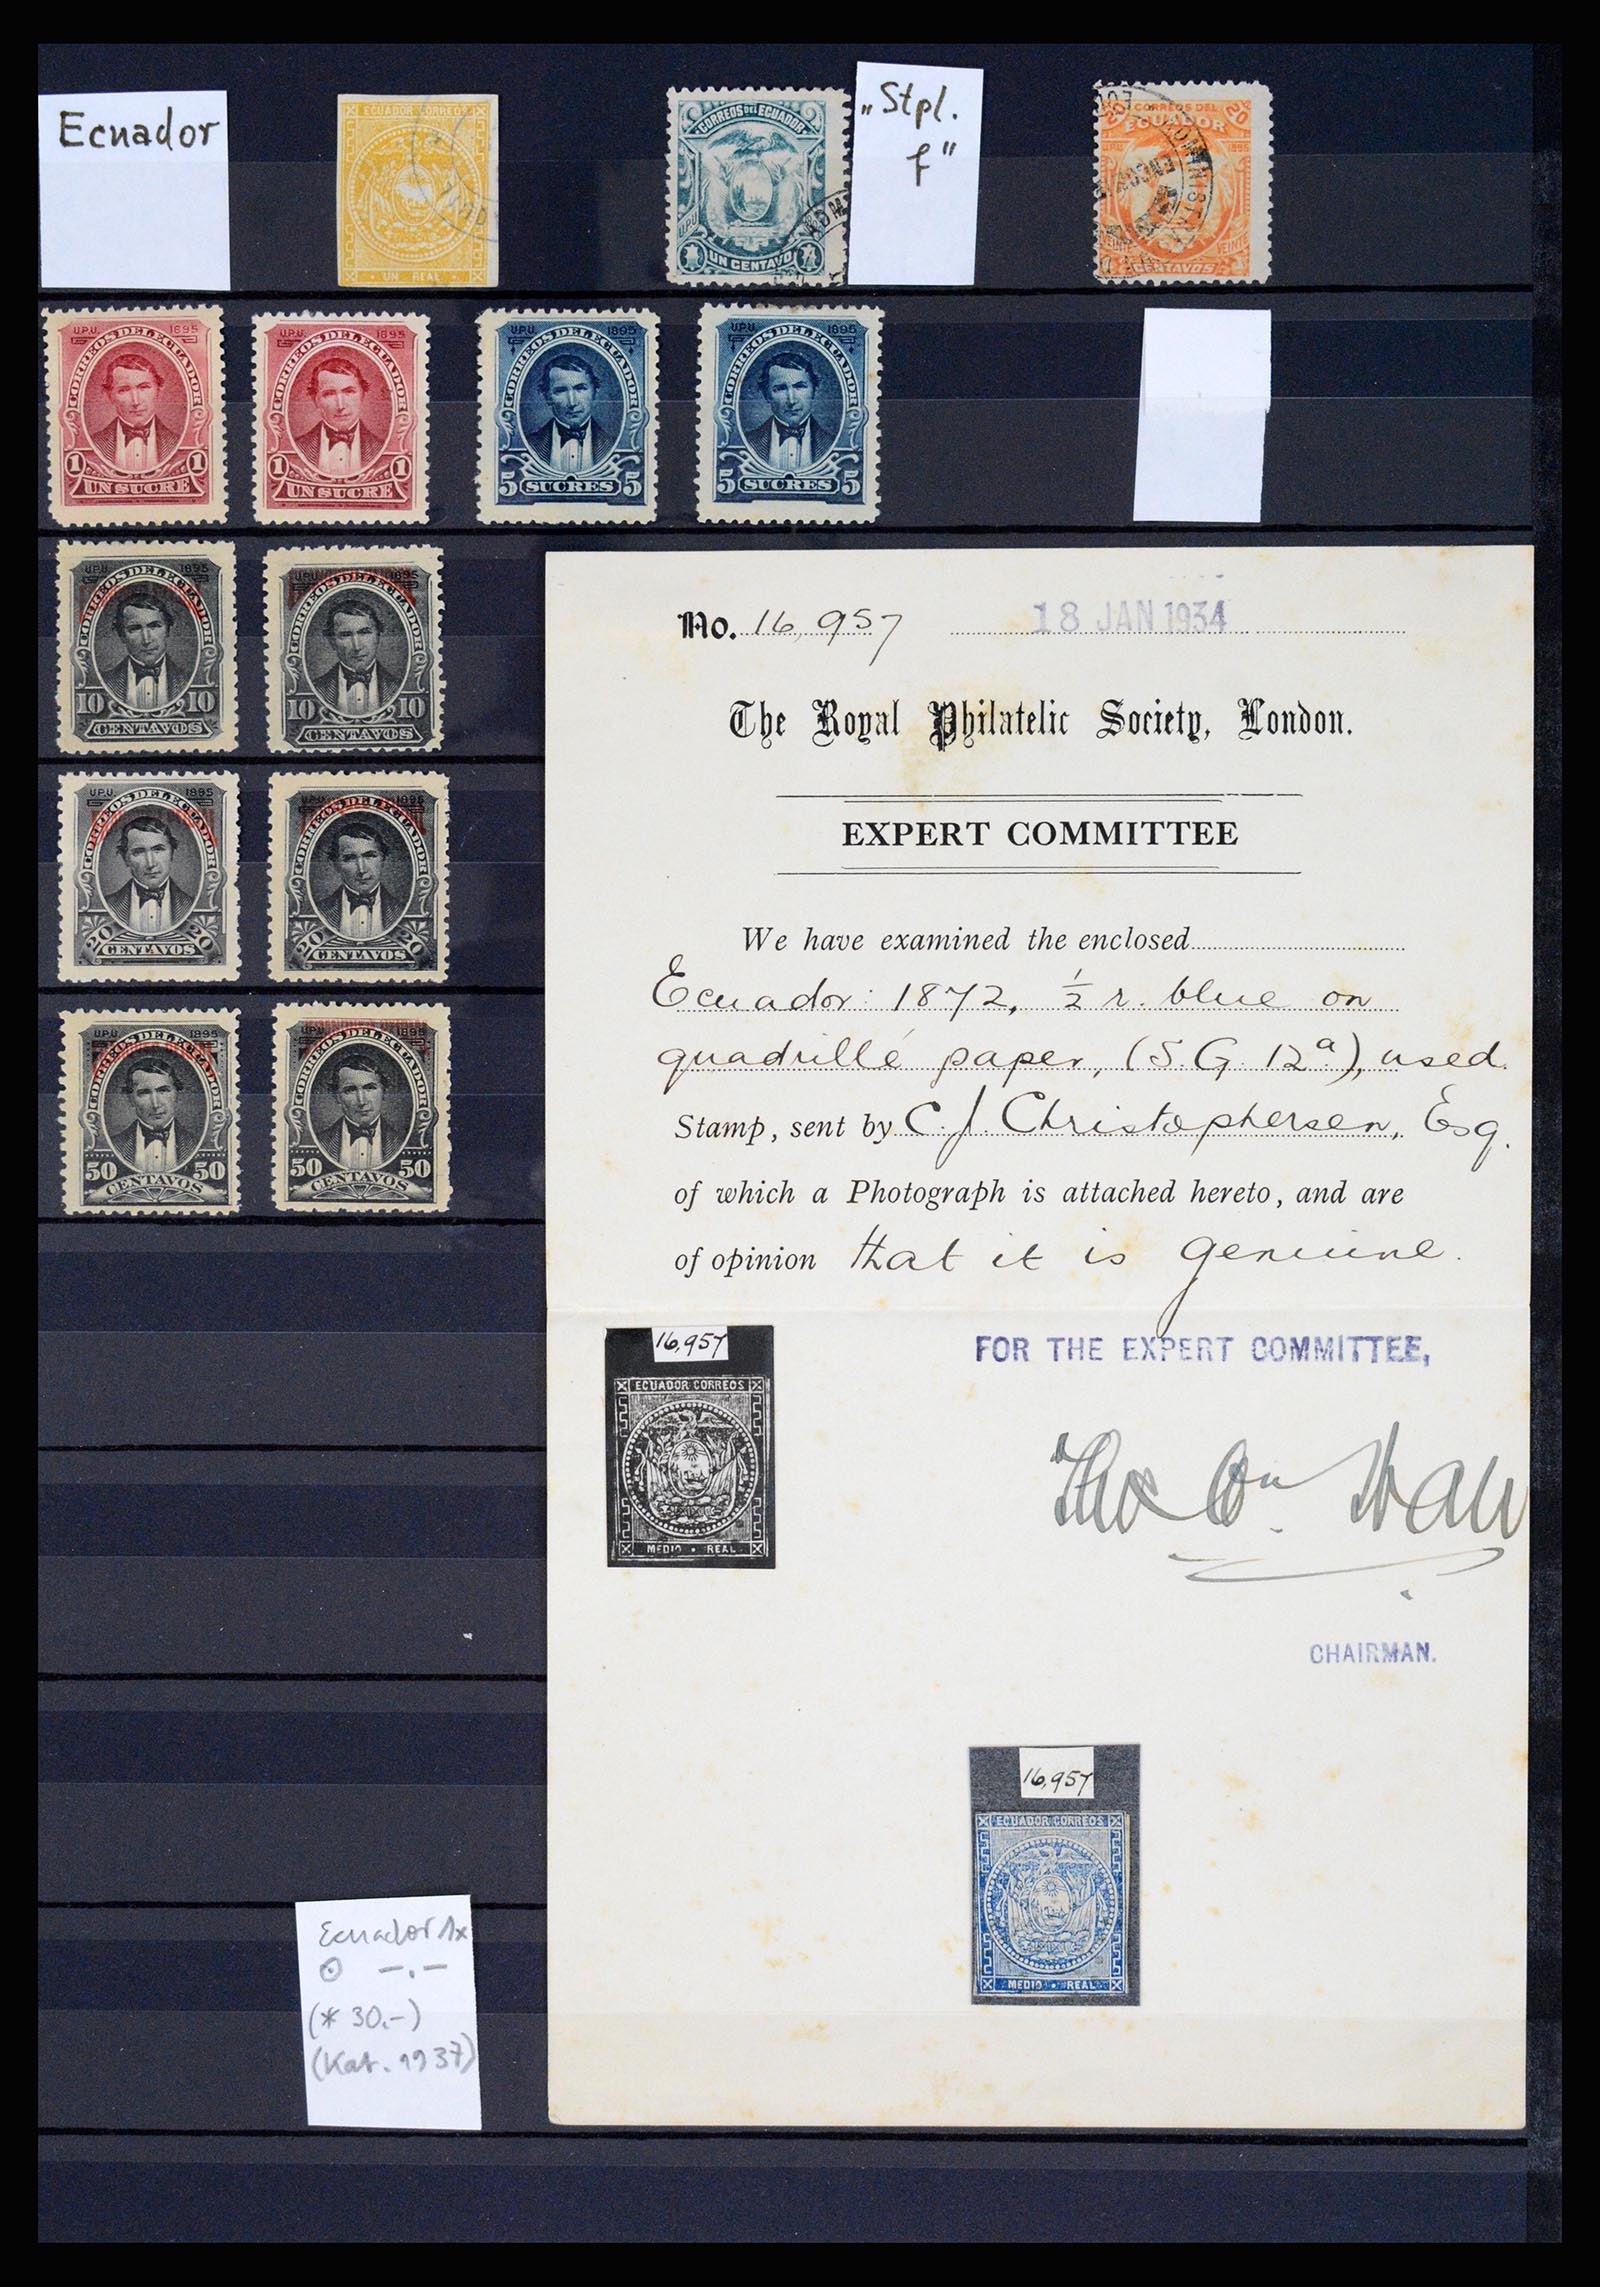 Ecuador
ECUADOR CORREOS
UN REAL
CORREOS DEL ECUADOR
U.P.U.
UN CENTAVO
„Stpl.
f"
20 CORREOS DEL 20
ECUADOR
U.P.U. 1895
VEINTE VEINTE
CENTAVOS
U.P.U. 1895
CORREOS DEL ECUADOR
1 1
UN SUCRE
U.P.U. 1895
CORREOS DEL ECUADOR
1 1
UN SUCRE
U.P.U. 1895
CORREOS DEL ECUADOR
5 SUCRES 5
U.P.U. 1895
CORREOS DEL ECUADOR
5 SUCRES 5
U.P.U. 1895
CORREOS DEL ECUADOR
10 10
CENTAVOS
U.P.U. 1895
CORREOS DEL ECUADOR
10 10
CENTAVOS
U.P.U. 1895
CORREOS DEL ECUADOR
20 20
CENTAVOS
U.P.U. 1895
CORREOS DEL ECUADOR
20 20
CENTAVOS
U.P.U. 1895
CORREOS DEL ECUADOR
50 50
CENTAVOS
U.P.U. 1895
CORREOS DEL ECUADOR
50 50
CENTAVOS
No. 16,957 18 JAN 1934
The Royal Philatelic Society, London.
EXPERT COMMITTEE
We have examined the enclosed
Ecuador: 1872, ½ r. blue on
quadrillé paper, (S.G. 12a), used.
Stamp, sent by C. J. Christophersen, Esq.
of which a Photograph is attached hereto, and are
of opinion that it is genuine.
FOR THE EXPERT COMMITTEE,
16,957
ECUADOR CORREOS
MEDIO • REAL
CHAIRMAN.
16,957
ECUADOR CORREOS
MEDIO • REAL
Ecuador 1x
⊙ -.-
(* 30.-)
(Kat. 1937)